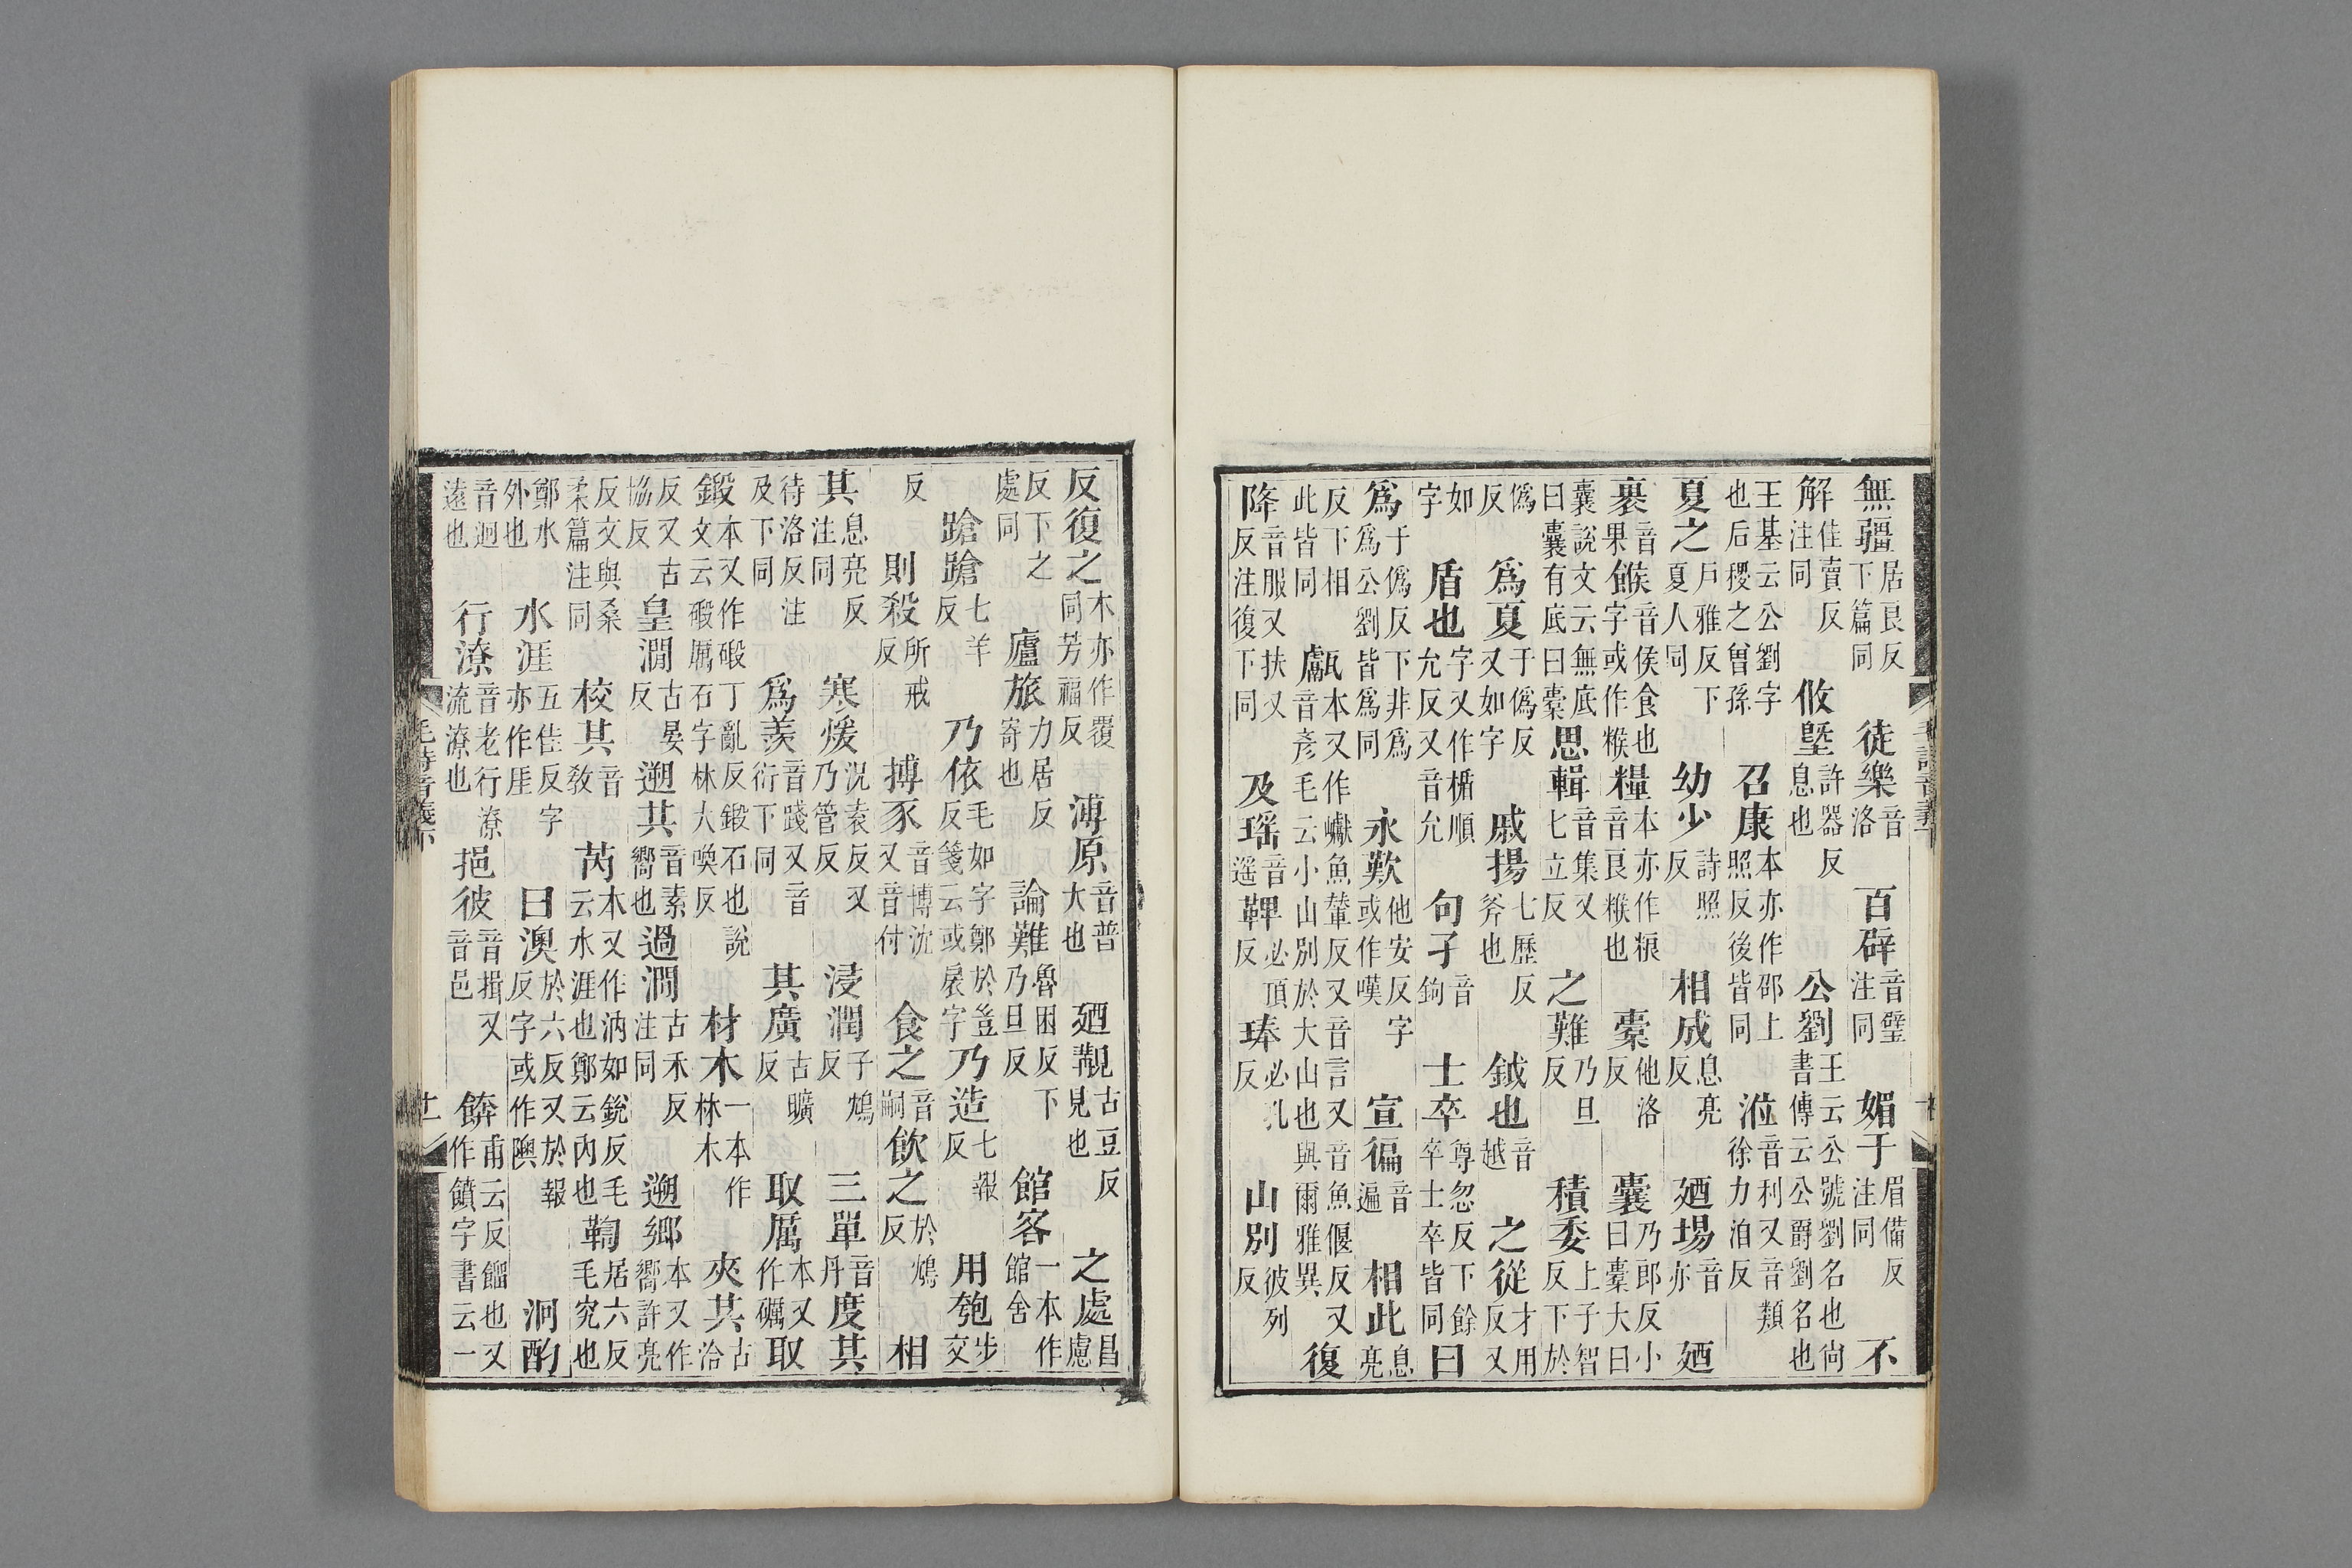 無疆居良反下篇同 徒樂音洛 百辟音璧注同 媚于眉備反注同 不
解佳賣反注同 攸墍許器反息也 公劉王云公號劉名也尙書傳云公爵劉名也
王基云公劉字也后稷之曾孫 召康本亦作邵上照反後皆同 涖音利又音類徐力洎反
夏之戶雅反下夏人同 幼少詩照反 相成息亮反 廼埸音亦 廼
裹音果 餱音侯食也字或作糇 糧本亦作粻音良糇也 橐他洛反 囊乃郎反小曰橐大曰
囊說文云無底曰囊有底曰橐 思輯音集又七立反 之難乃旦反 積委上子智反下於
僞反 爲夏于僞反又如字 戚揚七歷反斧也 鉞也音越 之從才用反又
如字 盾也字又作楯順允反又音允 句孑音鉤 士卒尊忽反下餘卒士卒皆同 曰
爲于僞反下非爲爲公劉皆爲同 永歎他安反字或作嘆 宣徧音遍 相此息亮
反下相此皆同 甗本又作巘魚輦反又音言又音魚偃反又音彥毛云小山別於大山也與爾雅異 復
降音服又扶又反注復下同 及瑤音遥 鞞必頂反 琫必孔反 山別彼列反
反復之本亦作覆同芳福反 溥原音普大也 廼覯古豆反見也 之處昌慮
反下之處同 廬旅力居反寄也 論難魯困反下乃旦反 館客一本作館舍
蹌蹌七羊反 乃依毛如字鄭於豈反箋云或扆字 乃造七報反 用匏步交
反 則殺所戒反 搏豕音博沈又音付 食之音嗣 飮之於鴆反 相
其息亮反注同 寒煖況袁反又乃管反 浸潤子鴆反 三單音丹 度其
待洛反注及下同 爲羨音踐又音衍下同 其廣古曠反 取厲本又作礪 取
鍛本又作碫丁亂反鍛石也說文云碫厲石字林大喚反 材木一本作林木 夾其古洽
反又古協反 皇澗古晏反 遡其音素嚮也 過澗古禾反注同 遡鄉本又作嚮許亮
反文與桑柔篇注同 校其音敎 芮本又作汭如銳反毛云水涯也鄭云內也 鞫居六反毛究也
鄭水外也 水涯五佳反字亦作厓 曰澳於六反又於報反字或作隩 泂酌
音迥遠也 行潦音老行潦流潦也 挹彼音揖又音邑 餴甫云反餾也又作饙字書云一